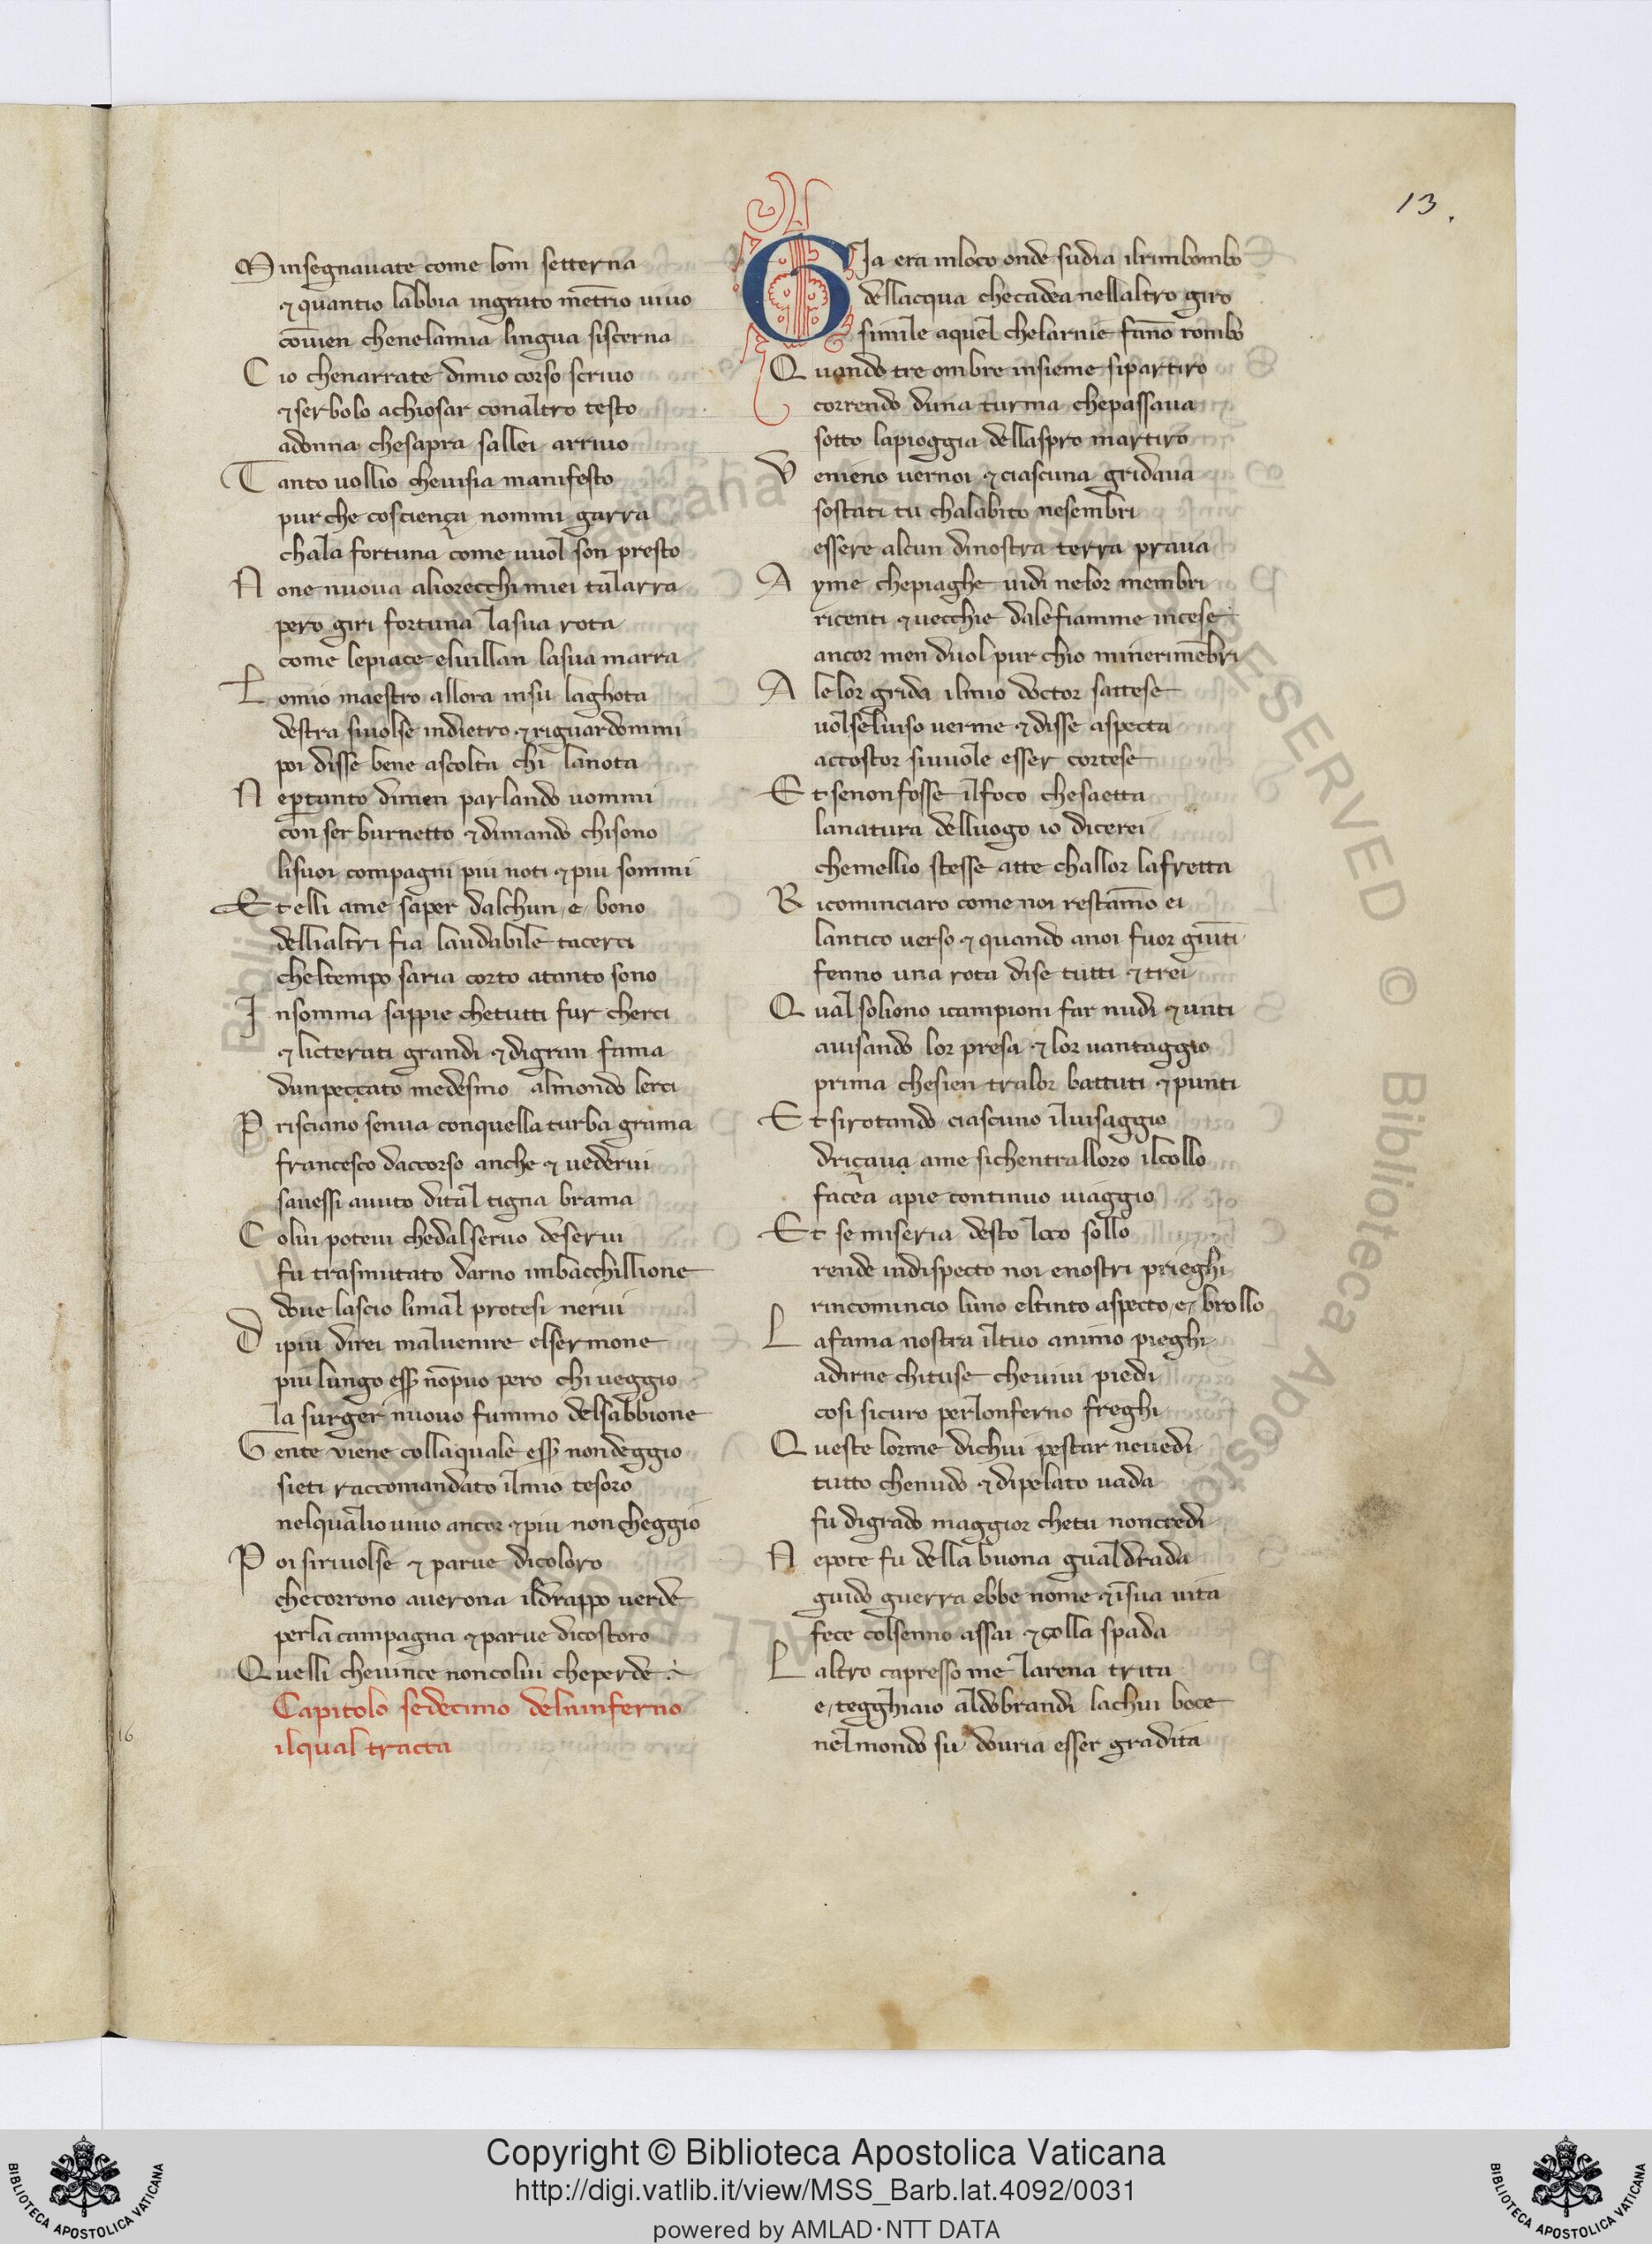 13.
M insegnauate come lom setterna
⁊ quantio labbia ingrato mētrio uiuo
cōuien chenelamia lingua siscerna
C io chenarrate dimio corso scriuo
⁊ serbolo achiosar conaltro testo
adonna chesapra sallei arriuo
T anto uollio cheuisia manifesto
pur che cosciença nommi garra
chala fortuna come uuol son presto
N one nuoua aliorecchi miei tal arra
pero giri fortuna lasua rota
come lepiace eluillan lasua marra
L omio maestro allora insu laghota
destra siuolse indietro ⁊ riguardommi
poi disse bene ascolta chi lanota
N epertanto dimen parlando uommi
con ser burnetto ⁊ dimando chisono
lisuoi compagni piu noti ⁊ piu sommi
E t elli ame saper dalchun, e, bono
dellialtri fia laudabile tacerci
cheltempo saria corto atanto sono
I nsomma sappie chetutti fur cherci
⁊ licterati grandi ⁊ digran fama
dunpeccato medesmo almondo lerci
P risciano senua conquella turba grama
francesco daccorso anche ⁊ uederui
sauessi auuto dital tigna brama
C olui poteui chedalseruo deserui
fu trasmutato darno imbacchillione
doue lascio limal protesi nerui
D ipiu direi maluenire elsermone
piu lungo esser nō puo pero chi ueggio
la surger nuouo fummo delsabbione
G ente viene collaquale esser nondeggio
sieti raccomandato ilmio tesoro
nelqualio uiuo ancor ⁊ piu non cheggio
P oi siriuolse ⁊ parue dicoloro
checorrono auerona ildrappo uerde
perla campagna ⁊ parue dicostoro
Q uelli cheuince noncolui cheperde
Capitolo sedecimo delninferno
ilqual tracta
16
G Ia era inloco onde sudia ilrimbombo
dellacqua checadea nellaltro giro
simile aquel chelarnie fanno rombo
Q uando tre ombre insieme sipartiro
correndo duna turma chepassaua
sotto lapioggia dellaspro martiro
V enieno uernoi ⁊ ciascuna gridaua
sostati tu chalabito nesembri
essere alcun dinostra terra praua
A yme chepiaghe uidi nelor membri
ricenti ⁊ uecchie dalefiamme incese
ancor men duol pur chio minerimēbri
A lelor grida ilmio doctor sattese
uolseluiso uerme ⁊ disse aspecta
accostor siuuole esser cortese
E t senonfosse ilfoco chesaetta
lanatura delluogo io dicerei
chemellio stesse atte challor lafretta
R icominciaro come noi restāmo ei
lantico uerso ⁊ quando anoi fuor giūti
fenno una rota dise tutti ⁊ trei
Q ual soliono icampioni far nudi ⁊ unti
auisando lor presa ⁊ lor uantaggio
prima chesien tralor battuti ⁊ punti
E t sirotando ciascuno iluisaggio
driçaua ame sichentralloro ilcollo
facea apie continuo uiaggio
E t se miseria desto loco sollo
rende indispecto noi enostri prieghi
rincomincio luno eltinto aspecto, e, brollo
L afama nostra iltuo animo pieghi
adirne chituse cheuiui piedi
cosi sicuro perlonferno freghi
Q ueste lorme dichui pestar neuedi
tutto chenudo ⁊ dipelato uada
fu digrado maggior chetu noncredi
N epote fu della buona gualdrada
guido guerra ebbe nome ⁊ īsua uita
fece colsenno assai ⁊ colla spada
L altro capresso me larena trita
e, tegghiaio aldobrandi lachui boce
nelmondo su douria esser gradita
Copyright © Biblioteca Apostolica Vaticana
http://digi.vatlib.it/view/MSS_Barb.lat.4092/0031
powered by AMLAD·NTT DATA
BIBLIOTECA APOSTOLICA VATICANA
BIBLIOTECA APOSTOLICA VATICANA